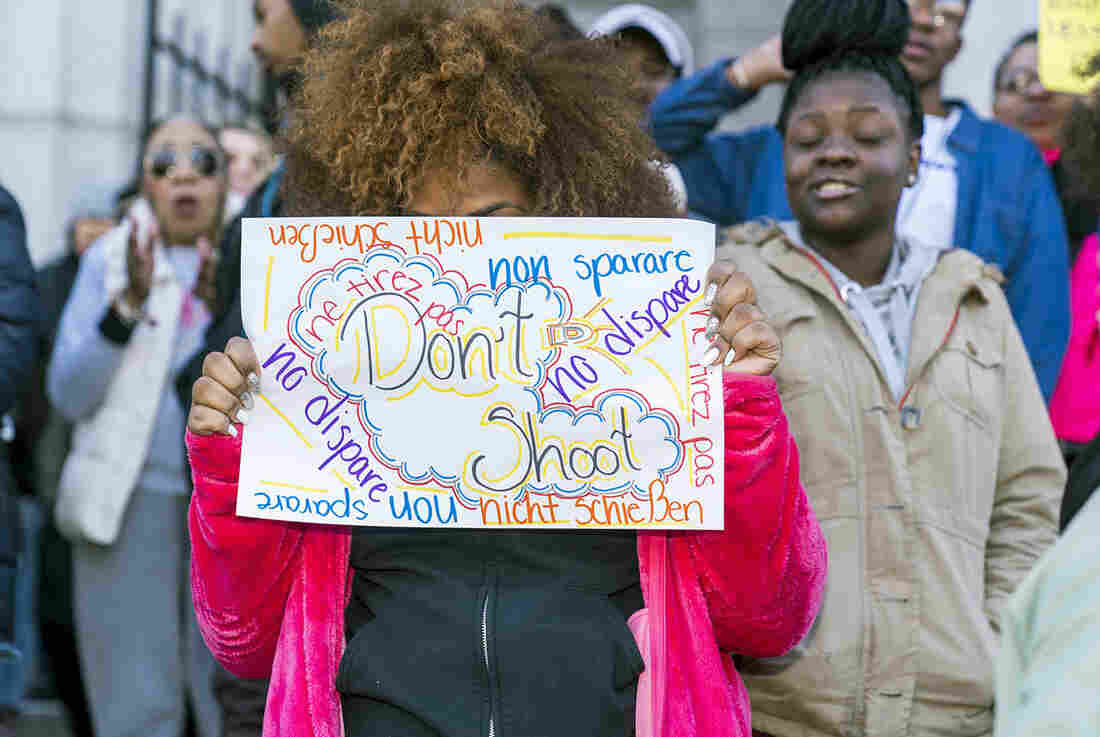 nicht schießen
non sparare
ne tirez pas
no dispare
Don't
Shoot
no dispare
ne tirez pas
non sparare
nicht schießen